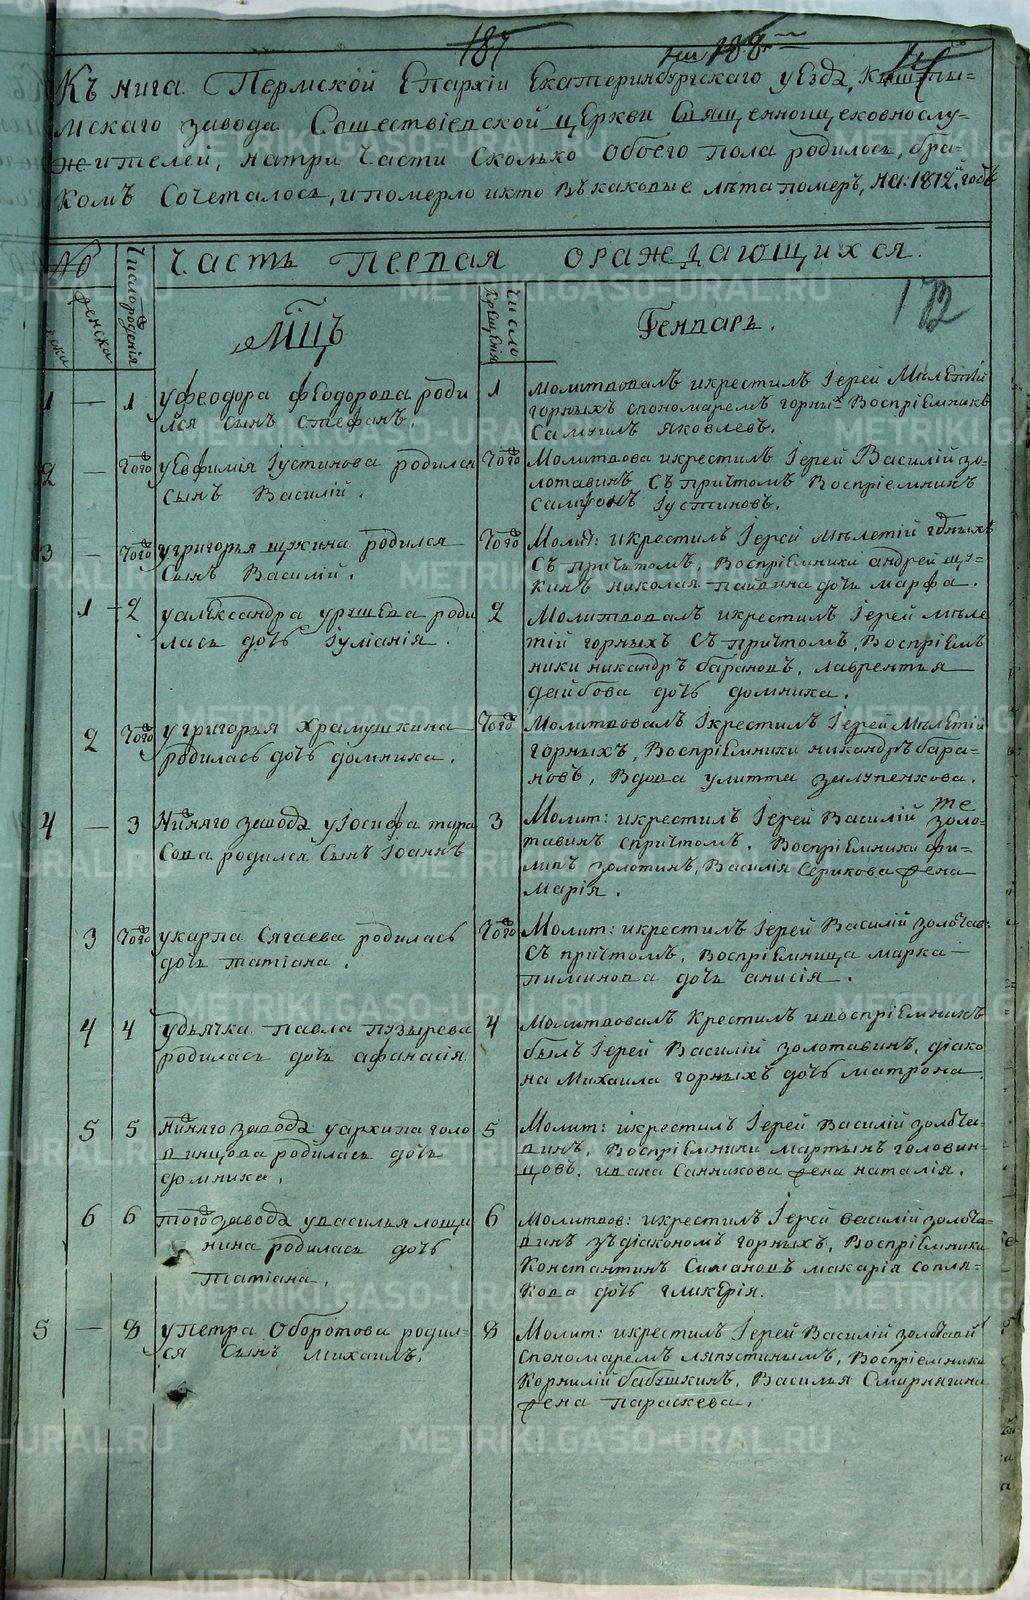 187
188
172
Кънига Пермской Епархіи Екатеринбургскаго уезда, Кышты-
мскаго завода Сошествіевской церкви Священноцерковнослу-
жителей, натри части сколько обоего пола родилось, бра-
комъ сочеталось, ипомерло икто въкаковые лѣта померъ, на: 1812й годъ
№
Числорожденія
Часть первая ораждающихся.
женска
Мцъ
Число крещенія
Генварь.
1 — 1 уфеодора феодорова роди
лся сынъ стефанъ.
1 молитвовалъ икрестилъ Іерей Мѣлетій
горныхъ спономаремъ горных Воспріемникъ
Самуилъ яковлевъ.
2 — Того уЕвфимія Іустинова родился
сынъ Василій.
Того Молитвова икрестилъ Іерей Василій зо-
лотавинъ съ причтомъ Воспріемникъ
самсонъ Іустиновъ.
3 — Того угригорья щукина родился
сынъ Василій.
Того Молит: икрестилъ Іерей мѣлетій горныхъ
съ причьтомъ, Воспріемники андрей щу-
кинъ николая пайвина дочь марфа.
1 2 уалександра урушева роди
лась дочь Іуліанія.
2 Молитвовалъ икрестилъ Іерей мѣле
тій горныхъ съ причтомъ, Воспріем
ники никандръ барановъ, лаврентья
дайбова дочь домника.
2 Того угригорья храмушкина
родилась дочь домника.
Того Молитвовалъ Ікрестилъ Іерей Мѣлетій
горныхъ, Воспріемники никандръ бара-
новъ, Вдова улитта залупенкова.
4 — 3 Нижняго завода уІосифа тара
сова родился сынъ Іоаннъ
3 Молит: икрестилъ Іерей Василій золо-
тавинъ спричтомъ. Воспріемники фи-
липъ золотинъ, Василія Серикова жена
марія.
3 Того укарпа Сягаева родилась
дочь татіана.
Того Молит: икрестилъ Іерей Василій золотав:
съ причтомъ, воспріемница марка
пиминова дочь анисія.
4 4 удьячка павла пузырева
родилась дочь афанасія
4 Молитвовалъ Крестилъ ивоспріемникъ
былъ Іерей Василій золотавинъ, діако
на Михаила горныхъ дочь матрона.
5 5 Нижняго завода уархипа голо
винцова родилась дочь
домника.
5 Молит: ікрестилъ Іерей Василій золота-
винъ, Воспріемники мартынъ головин-
цовъ, ивана Санникова жена наталія.
6 6 того завода увасилья лощи
нина родилась дочь
татіана.
6 Молитвов: икрестилъ Іерей василій золота-
винъ зъдіакономъ горныхъ, Воспріемники
Константинъ Симановъ макарія сопля-
кова дочь гликерія.
5 — 8 упетра Оборотова родил-
ся сынъ михаилъ.
8 Молит: икрестилъ Іерей Василій золотави
спономаремъ ляпустинымъ, Воспріемники
Корнилій бабушкинъ, Василья Смирнягина
жена параскева.
METRIKI.GASO-URAL.RU